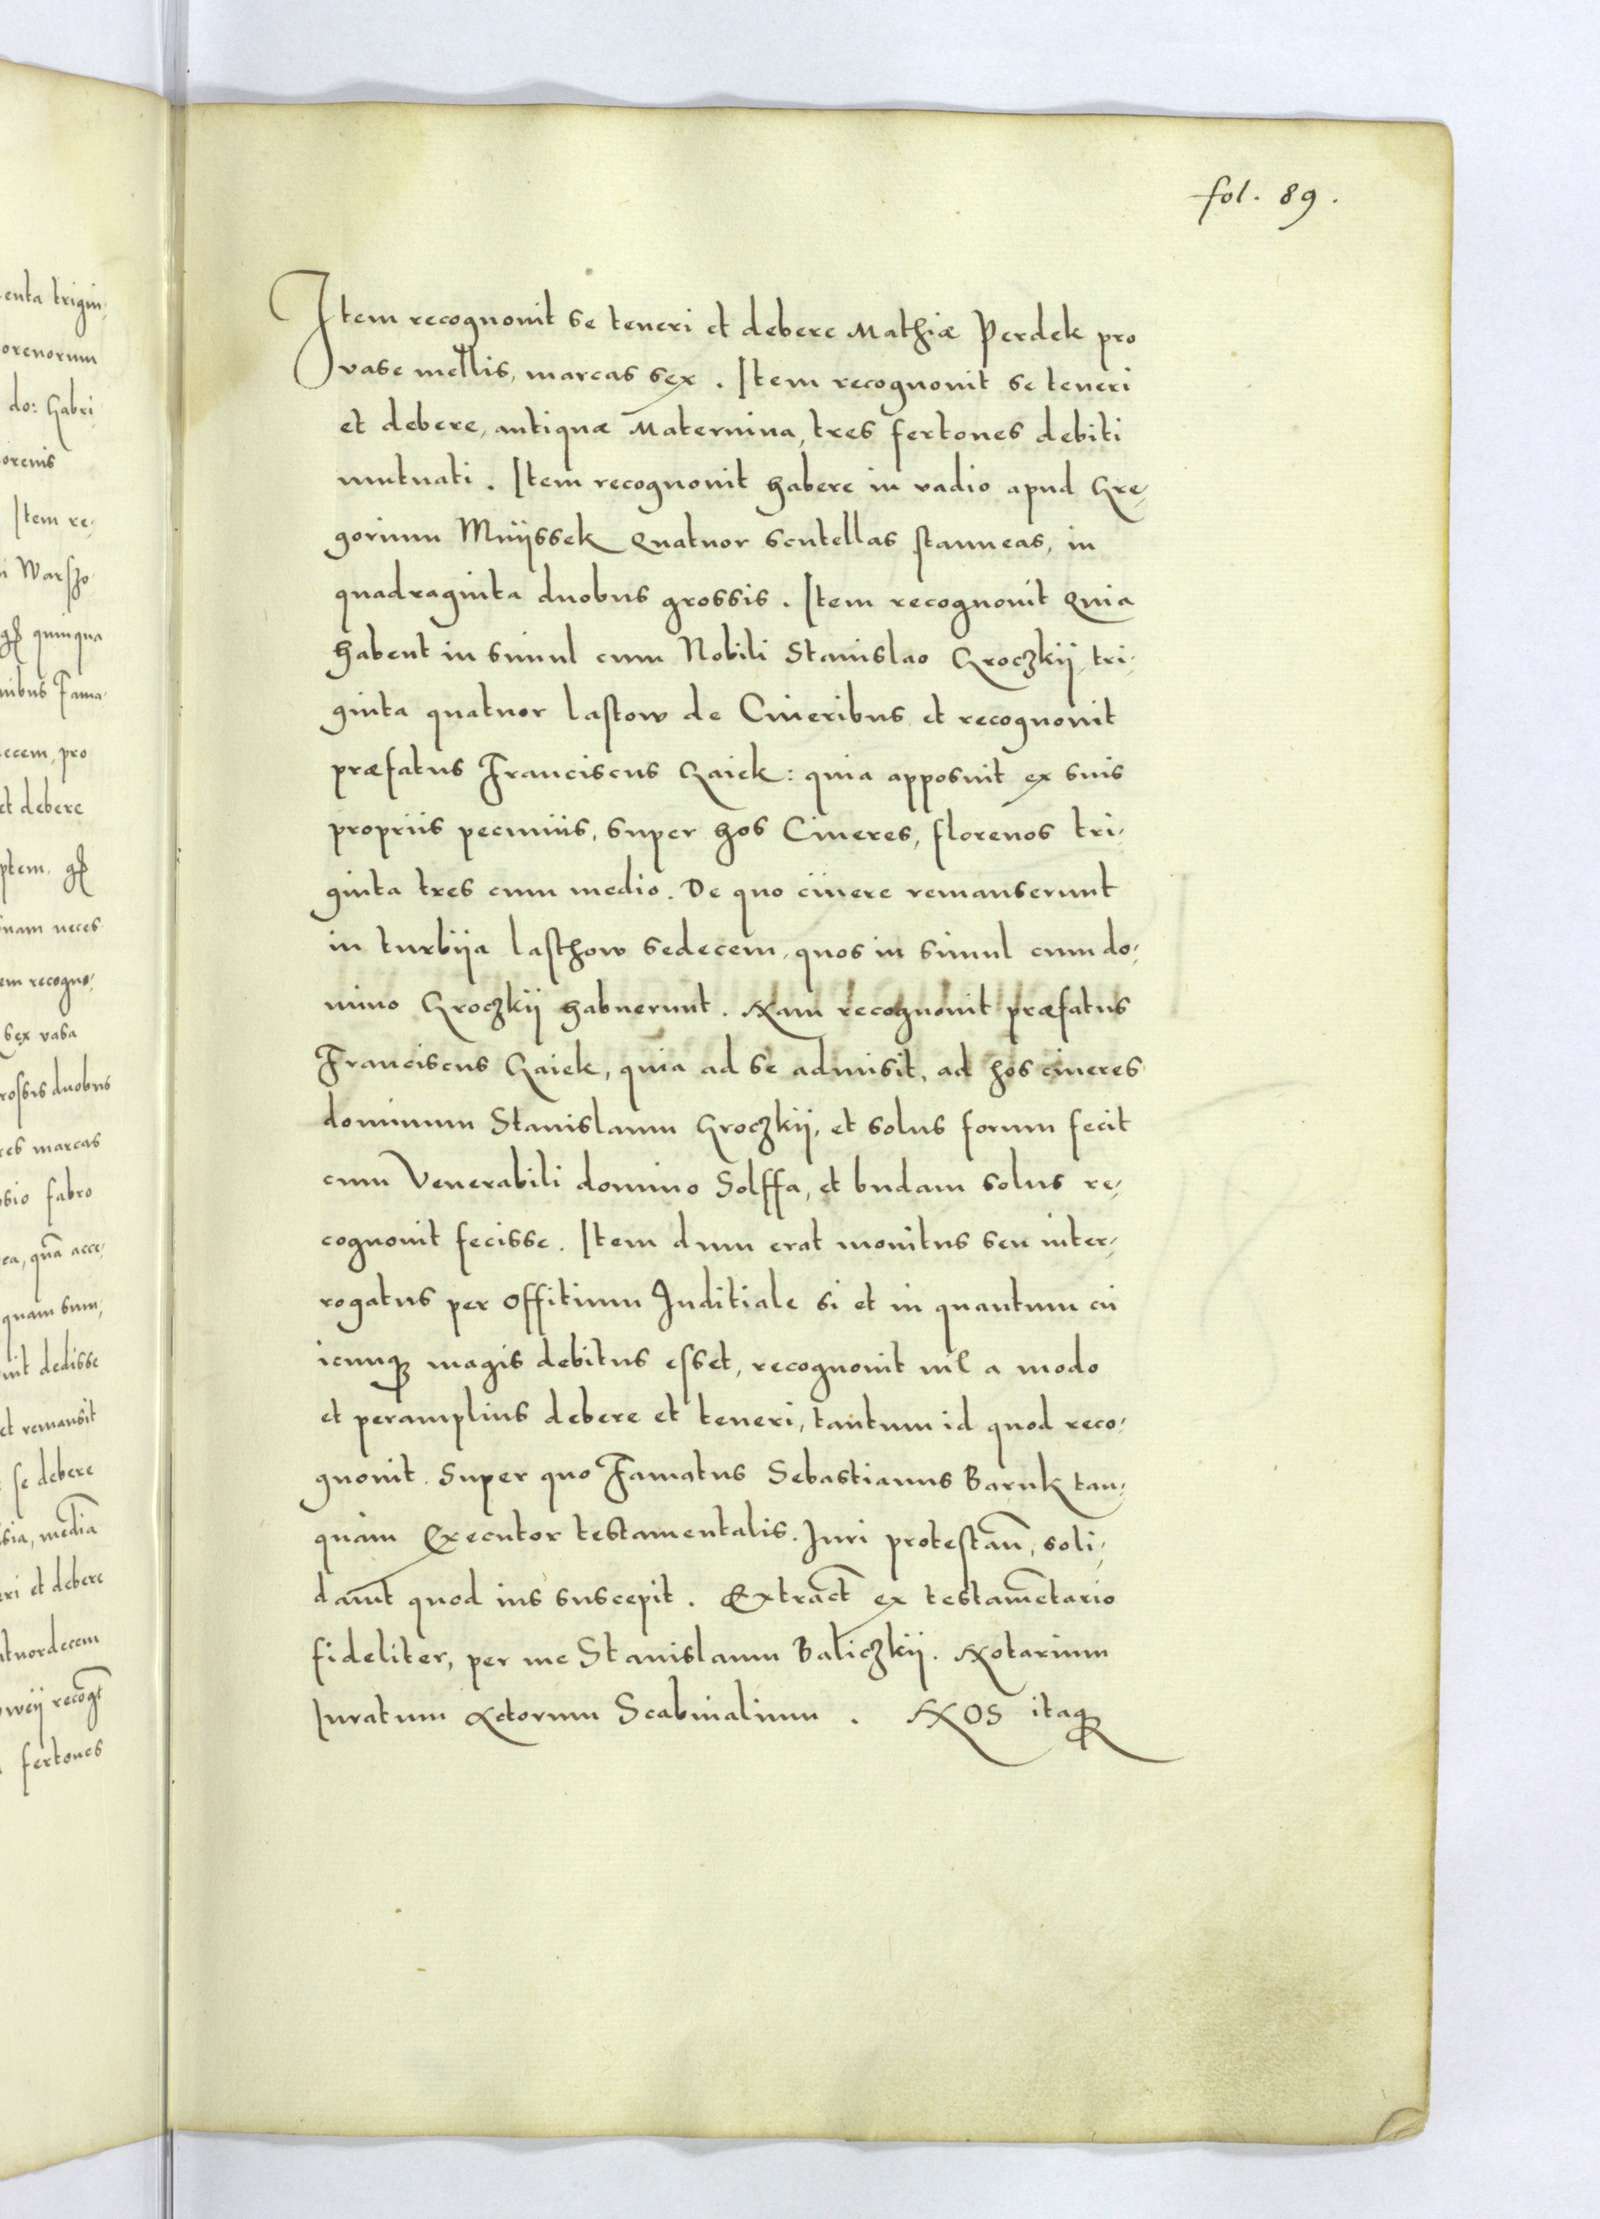 fol. 89.
Item recognouit se teneri et debere Mathiæ Perdek pro
vase mellis, marcas sex. Item recognouit se teneri
et debere, antiquæ Maternina, tres fertones debiti
mutuati. Item recognouit habere in vadio apud Gre-
gorium Mnijssek quatuor scutellas stanneas, in
quadraginta duobus grossis. Item recognouit quia
habent in simul cum Nobili Stanislao Groczkij, tri-
ginta quatuor lastow de Cineribus et recognouit
præfatus Franciscus Gaiek: quia apposuit ex suis
propriis pecuniis, super hos Cineres, florenos tri-
ginta tres cum medio. De quo cinere remanserunt
in turbija lasthow sedecem, quos in simul cum do-
mino Groczkij habuerunt. Nam recognouit præfatus
Franciscus Gaiek, quia ad se admisit, ad hos cineres
dominum Stanislaum Groczkij, et solus forum fecit
cum Venerabili domino Solffa, et budam solus re-
cognouit fecisse. Item dum erat monitus seu inter-
rogatus per offitium Iuditiale si et in quantum cu
icunqꝫ magis debitus esset, recognouit nil a modo
et peramplius debere et teneri, tantum id quod reco-
gnouit. Super quo Famatus Sebastianus Baruk tan-
quam Executor testamentalis. Iuri protestaũ, soli-
dauit quod ius suscepit. Extract̃ ex testamẽtario
fideliter, per me Stanislaum Baliczkij. Notarium
Iuratum Actorum Scabinalium. NOS itaqꝫ
enta trigin-
orenorum
do: Gabri
orenis
Item re-
i Warszo
quinqua
nibus Fama-
ecem, pro
et debere
ptem. gꝭ
nam neces
em recogno-
sex vasa
rossis duobus
res marcas
sio fabro
ea, quã acce-
quam sum-
uit dedisse
et remansit
se debere
sia, mediã
eri et debere
atuordecem
owij recogt̃
fertones